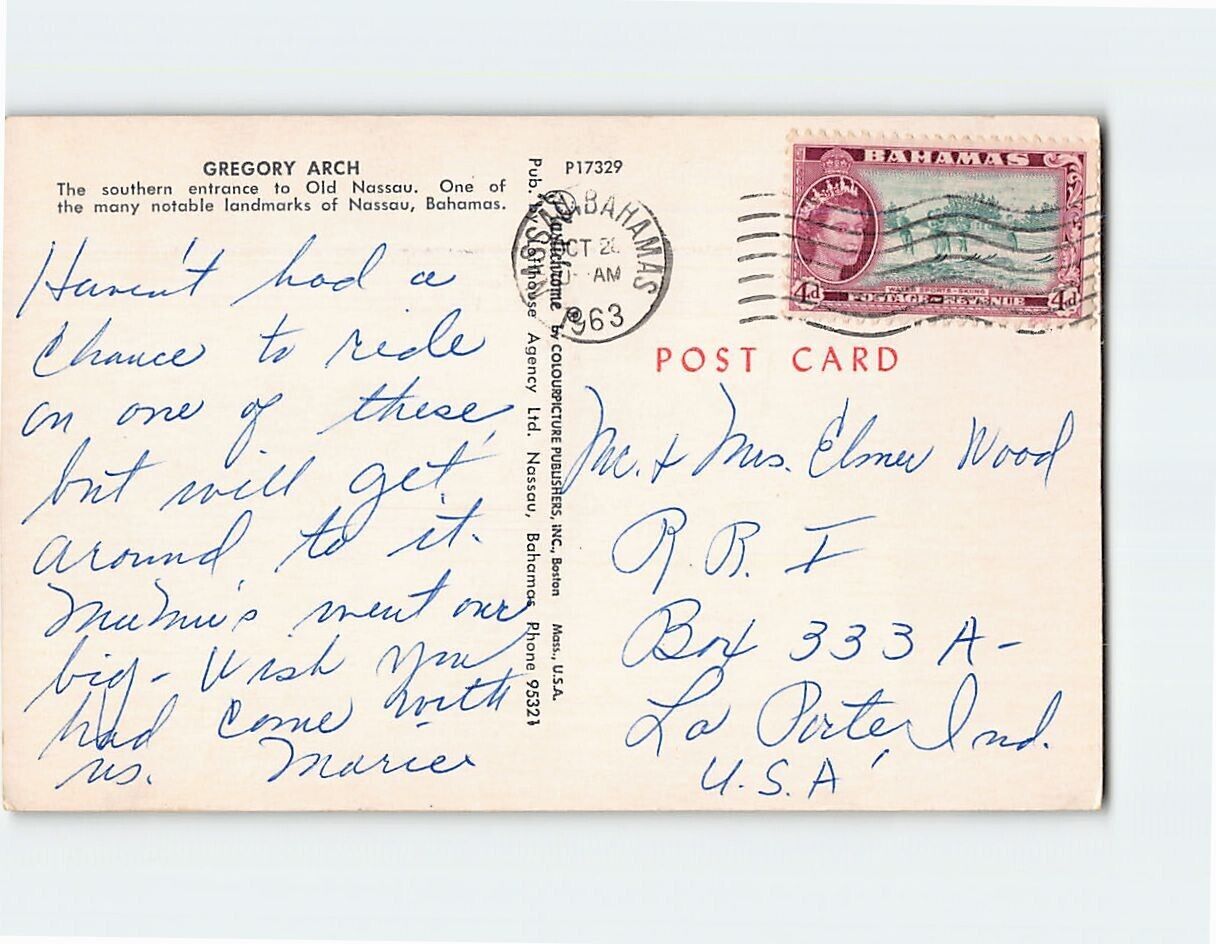 GREGORY ARCH
The southern entrance to Old Nassau. One of
the many notable landmarks of Nassau, Bahamas.
Haven't had a
chance to ride
on one of these,
but will get
around to it.
went over
big - Wish you
had come with
us. Marie
Pub. by Lofthouse Agency Ltd. Nassau, Bahamas Phone 95321
Plastichrome ® by COLOURPICTURE PUBLISHERS, INC., Boston Mass., U.S.A.
P17329
NASSAU BAHAMAS
OCT 2
AM
1963
BAHAMAS
4d
WATER SPORTS-SKIING
POSTAGE REVENUE
4d
POST CARD
Mr. & Mrs. Elmer Wood
R. R. I
Box 333 A-
La Porte, Ind.
U.S.A